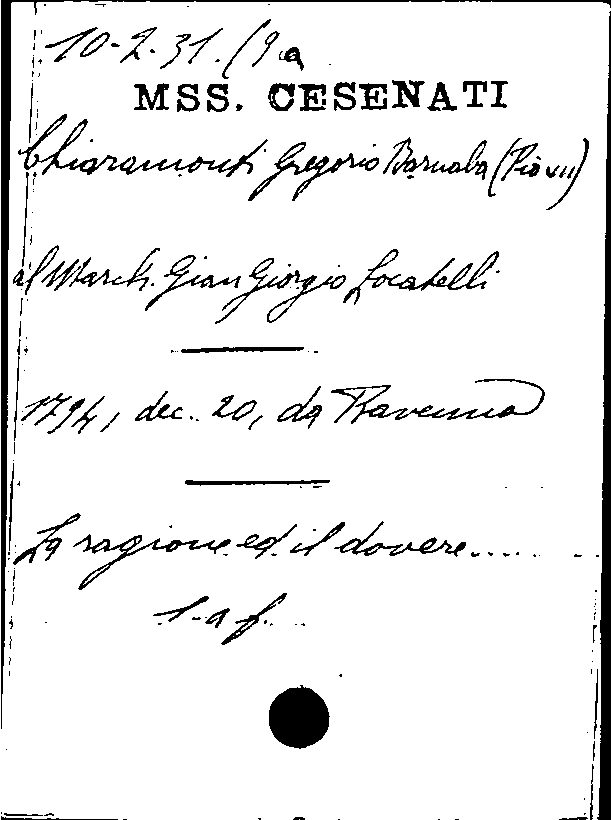 10-2-31. (9 a
MSS. CESENATI
Chiaramonti Gregorio Barnaba (Pio VII)
al March. Gian Giorgio Locatelli
1794, dec. 20, da Ravenna
La ragione ed il dovere.....
1. a f.